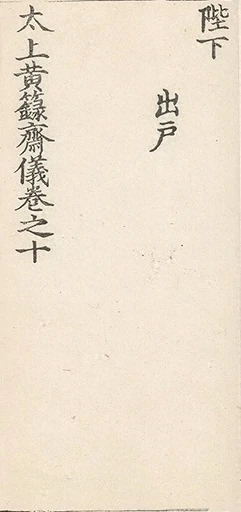 陛下
出戶
太上黃籙齋儀卷之十